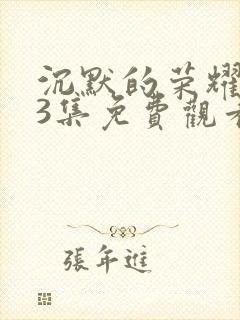 沉默的荣耀
3集免費觀看
張年進